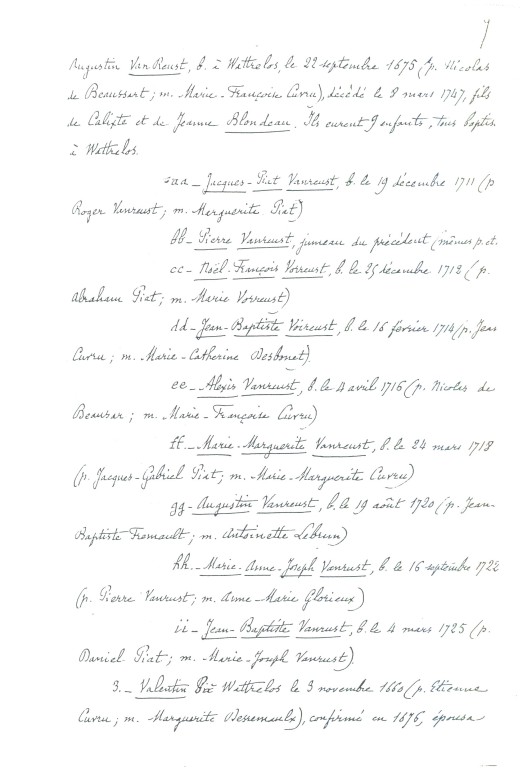 7
Augustin Van Reust, b. à Wattrelos, le 22 septembre 1675 (p. Nicolas
de Beaussart; m. Marie-Françoise Cuvru), décédé le 8 mars 1747, fils
de Calixte et de Jeanne Blondeau. Ils eurent 9 enfants, tous baptis.
à Wattrelos.
aa_ Jacques-Piat Vanreust, b. le 19 décembre 1711 (p
Roger Vanreust; m. Marguerite Piat)
bb_ Pierre Vanreust, jumeau du précédent (mêmes p. et.
cc_ Noël-François Vorreust, b. le 25 décembre 1712 (p.
Abraham Piat; m. Marie Vorreust)
dd_ Jean-Baptiste Voireust, b. le 16 février 1714 (p. Jean
Cuvru; m. Marie-Catherine Desbonet).
ee_ Alexis Vanreust, b. le 4 avril 1716 (p. Nicolas de
Beausar; m. Marie-Françoise Cuvru)
ff._ Marie-Marguerite Vanreust, b. le 24 mars 1718
(p. Jacques-Gabriel Piat; m. Marie-Marguerite Cuvru)
gg- Augustin Vanreust, b. le 19 août 1720 (p. Jean-
Baptiste Fremault; m. Antoinette Lebrun)
hh._ Marie-Anne-Joseph Vanrust, b. le 16 septembre 1722
(p. Pierre Vanrust; m. Anne-Marie Glorieux)
ii_ Jean-Baptiste Vanrust, b. le 4 mars 1725 (p.
Daniel Piat; m. Marie-Joseph Vanrust).
3._ Valentin Wattrelos le 3 novembre 1660 (p. Etienne
Cuvru; m. Marguerite Dessemaulx), confirmé en 1676, épousa